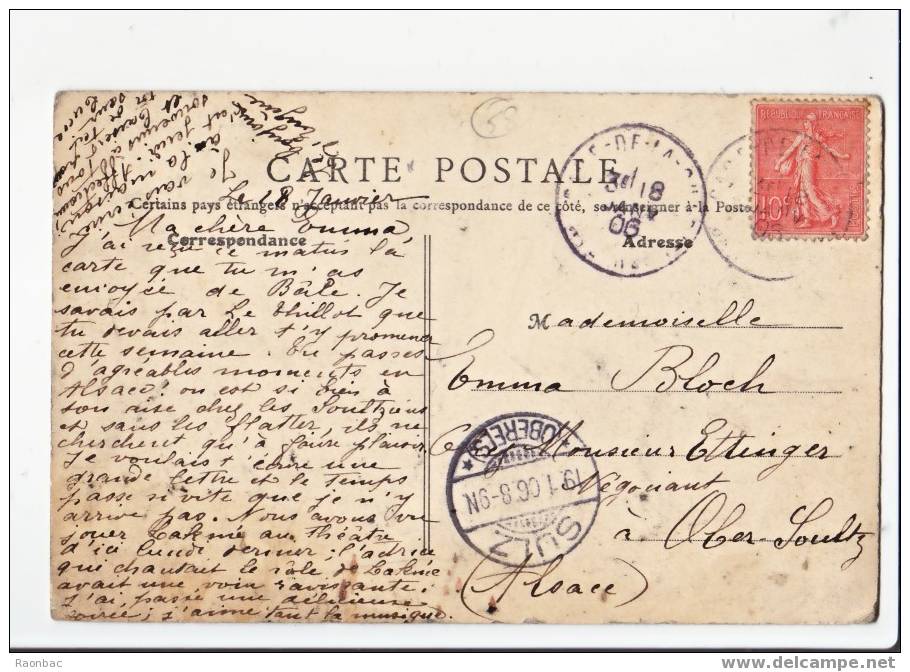 CARTE POSTALE
Certains pays étrangers n'acceptent pas la correspondance de ce côté, se renseigner à la Poste
Correspondance
Adresse
Le 18 Janvier
Ma chère Emma
J'ai reçu ce matin la
carte que tu m'as
envoyée de Bâle. Je
savais par Le Thillot que
tu devais aller t'y promener
cette semaine. Tu passes
d'agréables moments en
Alsace; on est si bien à
son aise chez les Soultziens
et sans les flatter, ils ne
cherchent qu'à faire plaisir.
Je voulais t'écrire une
grande lettre et le temps
passe si vite que je n'y
arrive pas. Nous avons vu
jouer Lakmé au théâtre
d'ici lundi dernier; l'actrice
qui chantait le rôle de Lakmé
avait une voix ravissante.
J'ai passé une délicieuse
soirée; j'aime tant la musique.
Je vais
à la
Mademoiselle
Emma Bloch
Monsieur Ettinger
Négociant
à Ober-Soultz
(Alsace)
REPUBLIQUE FRANÇAISE
10
18
JANV
06
SULZ
19.1.06.8-9N
(OBERELS)
Raonbac
delcampe.net